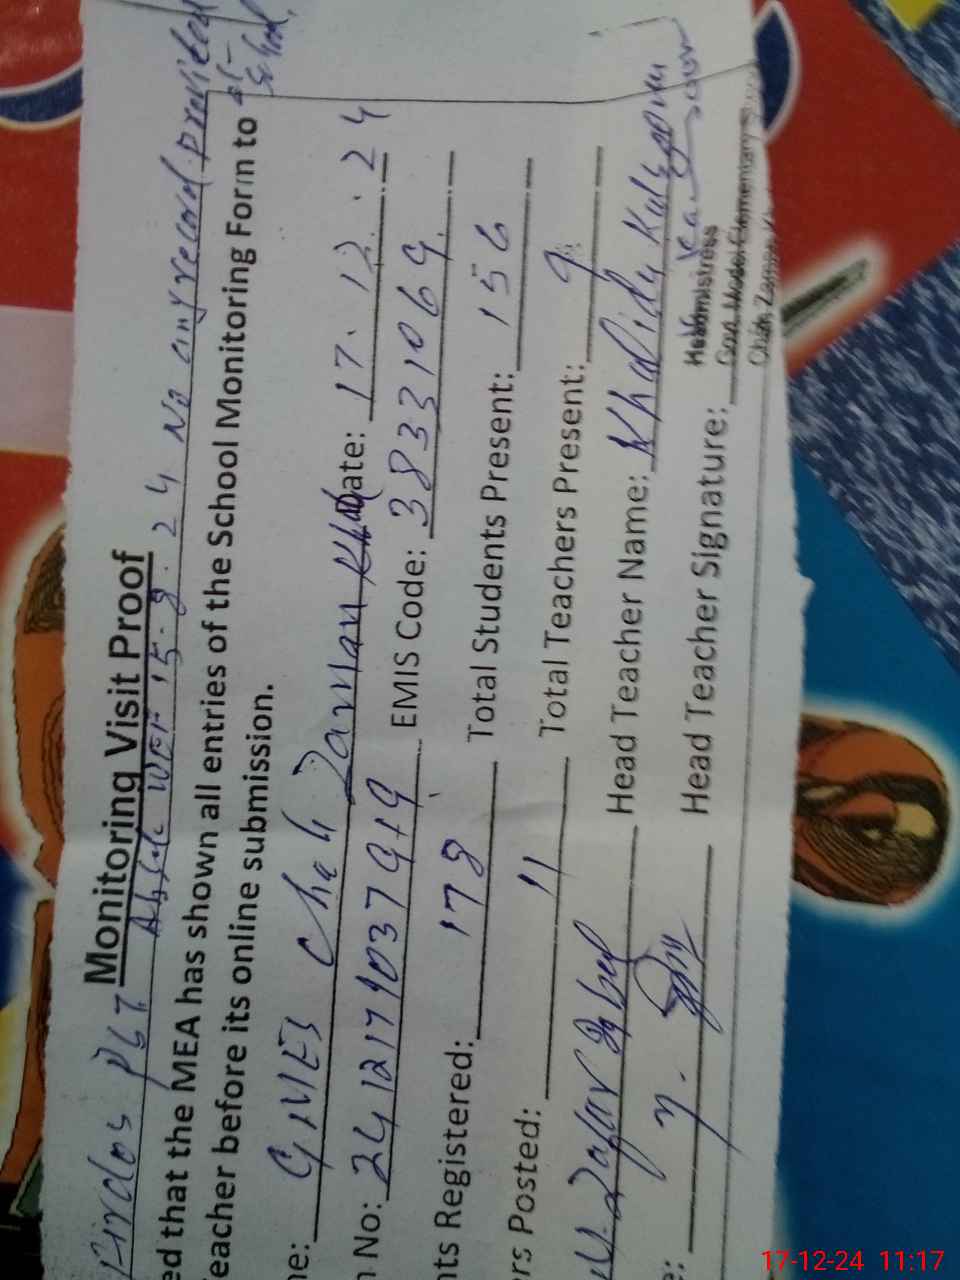 Firdos PST Absent WEF 15.9.24 No any record provided
by
School.
Monitoring Visit Proof
ed that the MEA has shown all entries of the School Monitoring Form to
eacher before its online submission.
ne: GMES Chah Zaman Khan Date: 17.12.24
n No: EMIS Code: 38331069
nts Registered: 178 Total Students Present: 156
rs Posted: 11 Total Teachers Present: 9
M Zafar Iqbal Head Teacher Name: Khalida
e: Head Teacher Signature:
Headmistress
Govt. Model Elementary
Chah Zaman
17-12-24 11:17